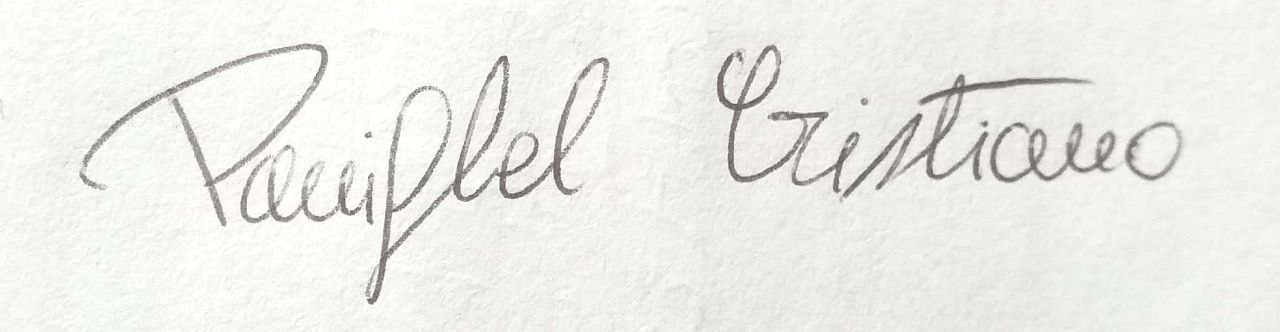 Paniflel Cristiano